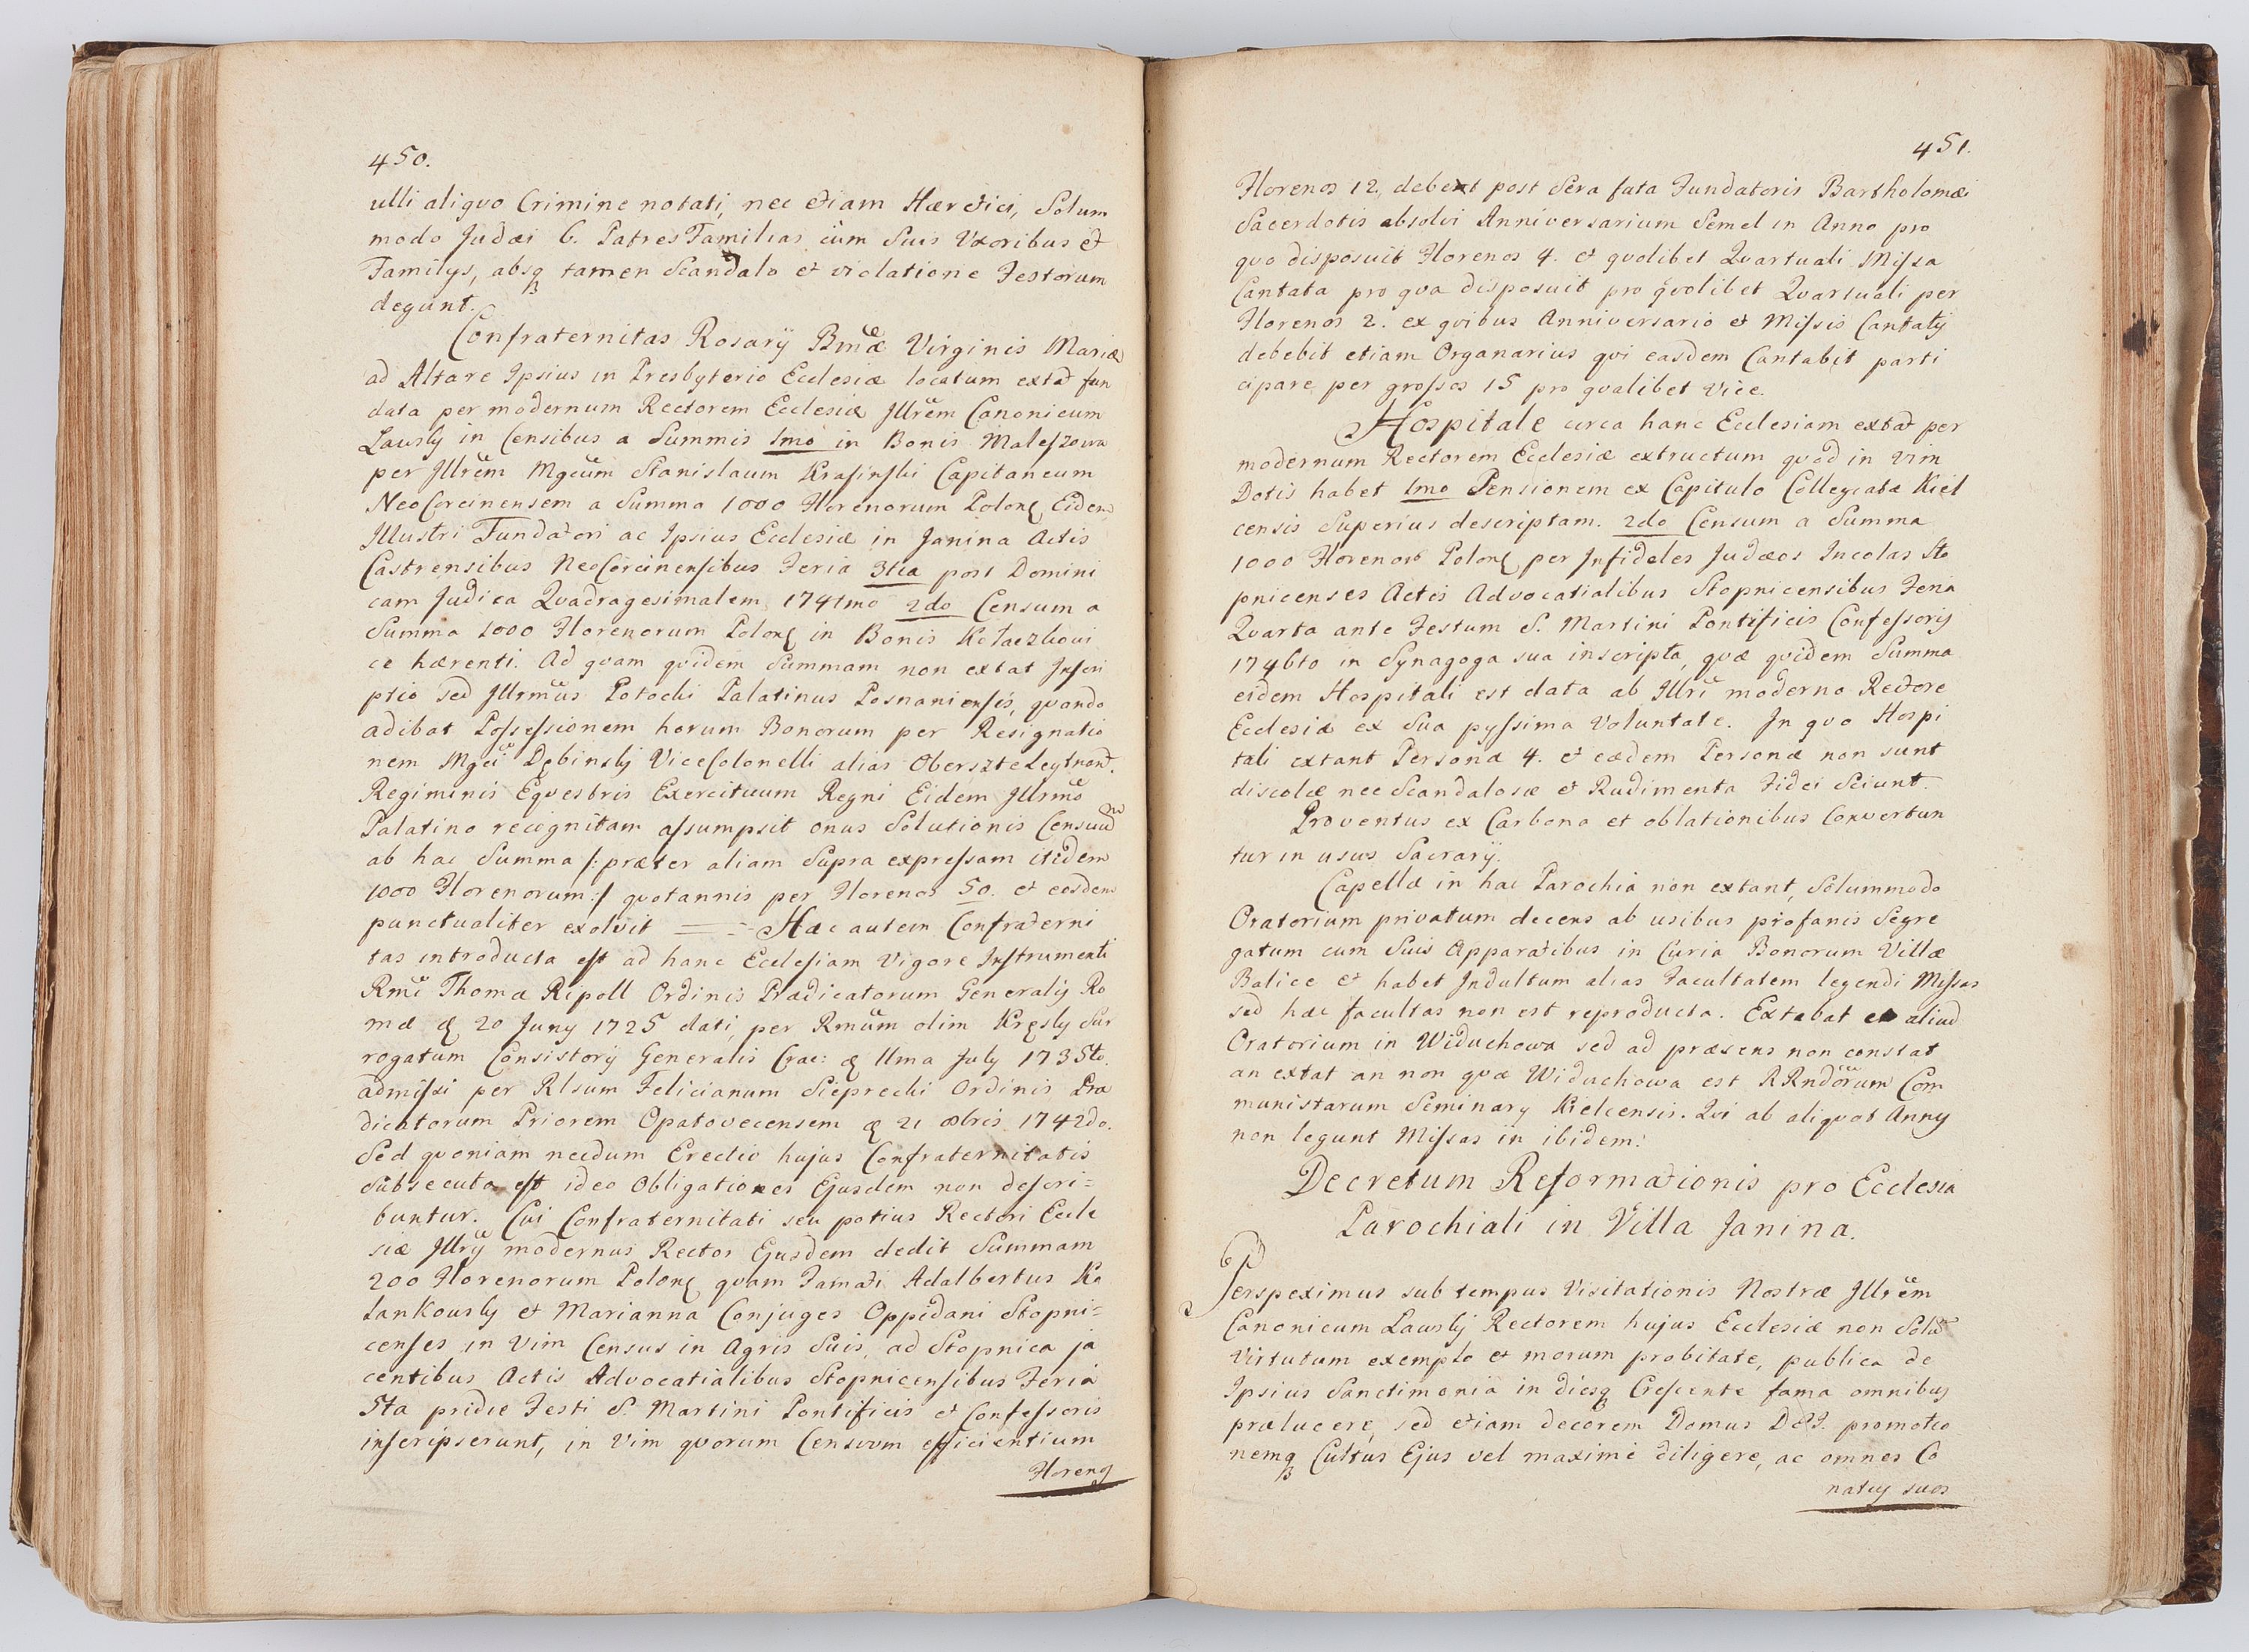 450.
ulli aliquo Crimine notati, nec etiam Hæretici, Solum
modo Judæi 6. Patres Familias cùm Suis Uxoribus et
Familys, absq tamen Scandalo et violatione Festorum
degunt.
Confraternitas Rosarÿ Bmæ Virginis Mariæ
ad Altare Ipsius in Presbyterio Ecclesiæ locatum extat fun
data per modernum Rectorem Ecclesiæ Jllrem Canonicum
Lawsky in Censibus a Summis 1mo in Bonis Maleszowa
per Jllrem Mgcum Stanislaum Krasinski Capitaneum
NeoCorcinensem a Summa 1000 Florenorum Polon Eidem
Jllustri Fundatori ac Ipsius Ecclesiæ in Janina Actis
Castrensibus NeoCorcinensibus Feria 3tia post Domini
cam Judica Quadragesimalem 1741mo 2do Censum a
Summa 1000 Florenorum Polon in Bonis Kołaczkowi
ce hærenti. Ad quam quidem Summam non extat Inscri
ptio sed Jllrmus Potocki Palatinus Posnaniensis, quando
adibat Possessionem horum Bonorum per Resignatio
nem Mgci Dębinsky ViceColonelli alias Oberszteleytnand.
Regiminis Equestris Exercituum Regni Eidem Jllrmo
Palatino recognitam assumpsit onus Solutionis Censuum
ab hac Summa /: præter aliam Supra expressam itidem
1000 Florenorum :/ quotannis per Florenos 50. et eosdem
punctualiter exolvit == Hæc autem Confraterni
tas introducta est ad hanc Ecclesiam Vigore Instrumenti
Rmi Thomæ Ripoll Ordinis Prædicatorum Generalis Ro
mæ 20 Juny 1725 dati, per Rmum olim Kręsky Sur
rogatum Consistorÿ Generalis Crac: 11ma July 1735to.
admissi per Rlsum Felicianum Sieprecki Ordinis Præ
dicatorum Priorem Opatovecensem 21 obris 1742do.
Sed quoniam necdum Erectio hujus Confraternitatis
Subsecuta est ideo Obligationes Ejusdem non descri=
buntur. Cui Confraternitati seu potius Rectori Eccle
siæ Jllris modernus Rector Ejusdem dedit Summam
200 Florenorum Polon quam Famati Adalbertus Ko
łankowsky et Marianna Conjuges Oppidani Stopni=
censes in Vim Census in Agris Suis, ad Stopnica ja
centibus Actis Advocatialibus Stopnicensibus Feria
5ta pridie Festi S. Martini Pontificis et Confessoris
inscripserunt, in Vim quorum Censuum efficientium
Florenos
451.
Florenos 12, debent post Sera fata Fundatoris Bartholomæi
Sacerdotis absolvi Anniversarium Semel in Anno pro
quo disposuit Florenos 4. et quolibet Quartuali Missa
Cantata pro qua disposuit pro quolibet Quartuali per
Florenos 2. ex quibus Anniversario et Missis Cantatis
debebit etiam Organarius qui easdem Cantabit parti
cipare per grossos 15 pro qualibet Vice.
Hospitale circa hanc Ecclesiam extat per
modernum Rectorem Ecclesiæ extructum quod in vim
Dotis habet 1mo Pensionem ex Capitulo Collegiatæ Kiel
censis Superius descriptam. 2do Censum a Summa
1000 Florenorū Polon per Infideles Judæos Incolas Sto
pnicenses Actis Advocatialibus Stopnicensibus Feria
Quarta ante Festum S. Martini Pontificis Confessoris
1746to in Synagoga sua inscripta, quæ quidem Summa
eidem Hospitali est data ab Jllri moderno Rectore
Ecclesiæ ex Sua pyssima Voluntate. In quo Hospi
tali extant Personæ 4. et eædem Personæ non sunt
discolæ nec Scandalosæ et Rudimenta Fidei Sciunt.
Proventus ex Carbona et oblationibus Convertun
tur in usus Sacrarÿ.
Capellæ in hac Parochia non extant, Solummodo
Oratorium privatum decens ab usibus profanis Segre
gatum cum Suis Apparatibus in Curia Bonorum Villæ
Balice et habet Indultum alias Facultatem legendi Missas
sed hæc facultas non est reproducta. Extabat et aliud
Oratorium in Widuchowa sed ad præsens non constat
an extat an non quæ Widuchowa est RRndorum Com
munistarum Seminary Kielcensis. Qui ab aliquot Annis
non legunt Missas in ibidem.
Decretum Reformationis pro Ecclesia
Parochiali in Villa Janina.
Perspeximus sub tempus Visitationis Nostræ Jllrem
Canonicum Lawsky Rectorem hujus Ecclesiæ non Solū
Virtutum exemplo et morum probitate, publica de
Ipsius Sanctimonia in diesq Crescente fama omnibus
prælucere, sed etiam decorem Domus DEI. promotio
nemq Cultus Ejus vel maximè diligere, ac omnes Co
natus suos